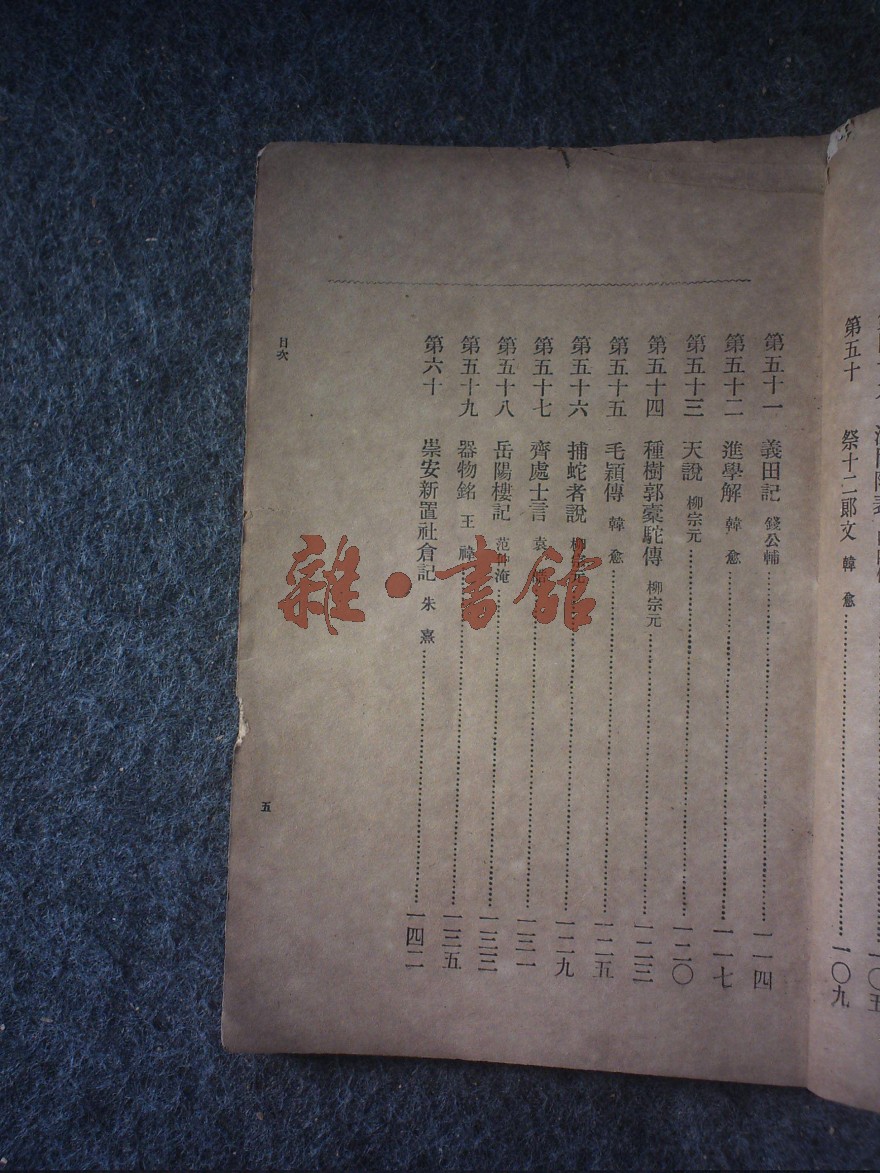 第五十 祭十二郞文 韓愈 一〇九
第五十一 義田記 錢公輔 一一四
第五十二 進學解 韓愈 一一七
第五十三 天說 柳宗元 一二〇
第五十四 種樹郭槖駝傳 柳宗元 一二三
第五十五 毛穎傳 韓愈 一二五
第五十六 捕蛇者說 柳宗元 一二九
第五十七 齊處士言 袁 一三一
第五十八 岳陽樓記 范仲淹 一三三
第五十九 器物銘 王禕 一三五
第六十 崇安新置社倉記 朱熹 一四二
目次
五
雜·書館